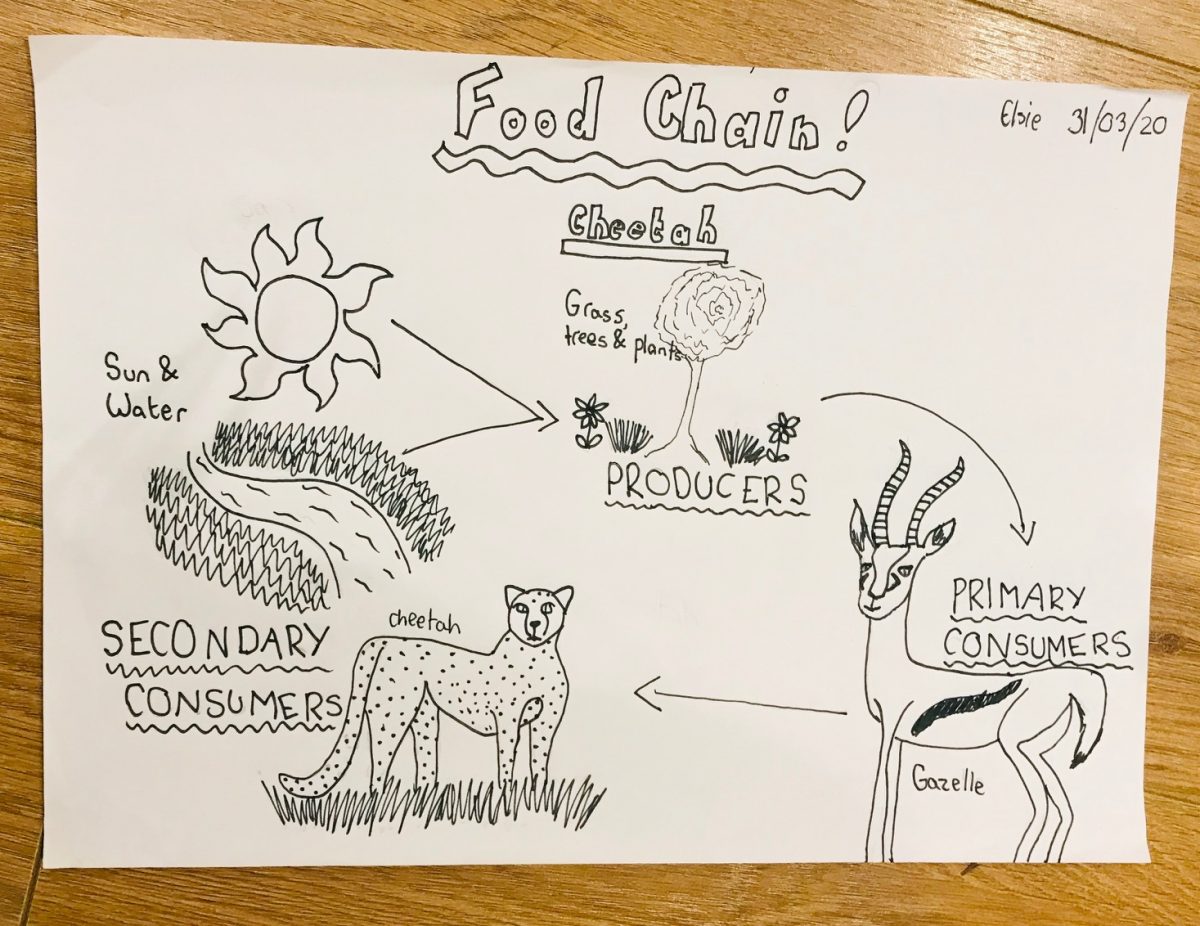 Food Chain!
Elsie 31/03/20
Cheetah
Grass,
trees & plants
Sun &
Water
PRODUCERS
PRIMARY
CONSUMERS
SECONDARY
CONSUMERS
cheetah
Gazelle